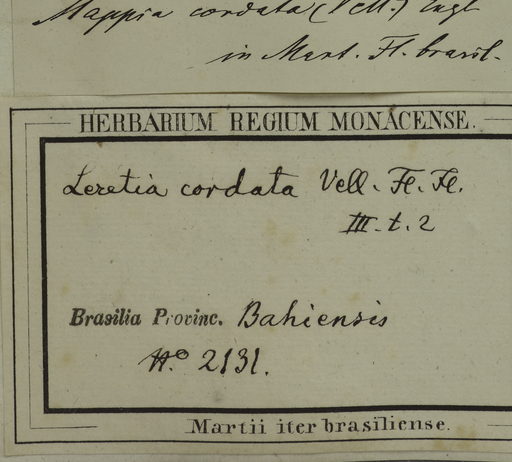 Mappia cordata (Vell.) Engl
in Mart. Fl. brasil.
HERBARIUM REGIUM MONACENSE.
Leretia cordata Vell. Fl. Fl.
III. t. 2
Brasilia Provinc. Bahiensis
No 2131.
Martii iter brasiliense.